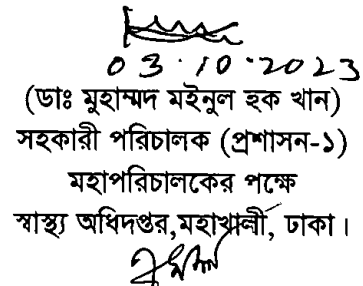 03.10.2023
(ডাঃ মুহাম্মদ মইনুল হক খান)
সহকারী পরিচালক (প্রশাসন-১)
মহাপরিচালকের পক্ষে
স্বাস্থ্য অধিদপ্তর,মহাখালী, ঢাকা।